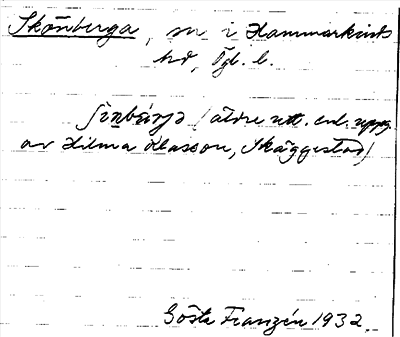 Skönberga, sn i Hammarkinds
hd, Ögl. l.
(äldre utt. enl. uppg.
av Hilma Klasson, Skäggestad)
Gösta Franzén 1932.